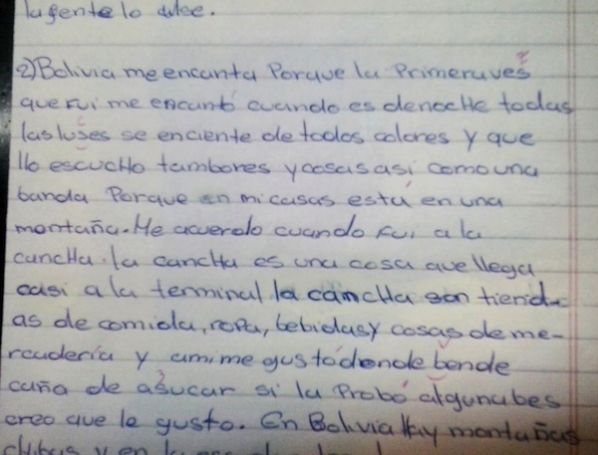 la gente lo dice.
2) Bolivia me encanta Porque la Primeraves
que Fui me encantó cuando es denocHe todas
las luses se enciente de todos colores y que
llo escucHo tambores y cosas asi como una
banda Porque en mi casas esta en una
montaña. Me acuerdo cuando Fui a la
cancHa. la cancHa es una cosa que llega
casi a la terminal la cancHa son tiend-
as de comida, ropa, bebidas y cosas de me-
rcaderia y ami me gusto donde bende
caña de asucar si la Probó algunabes
creo que le gusto. En Bolivia Hay montañas